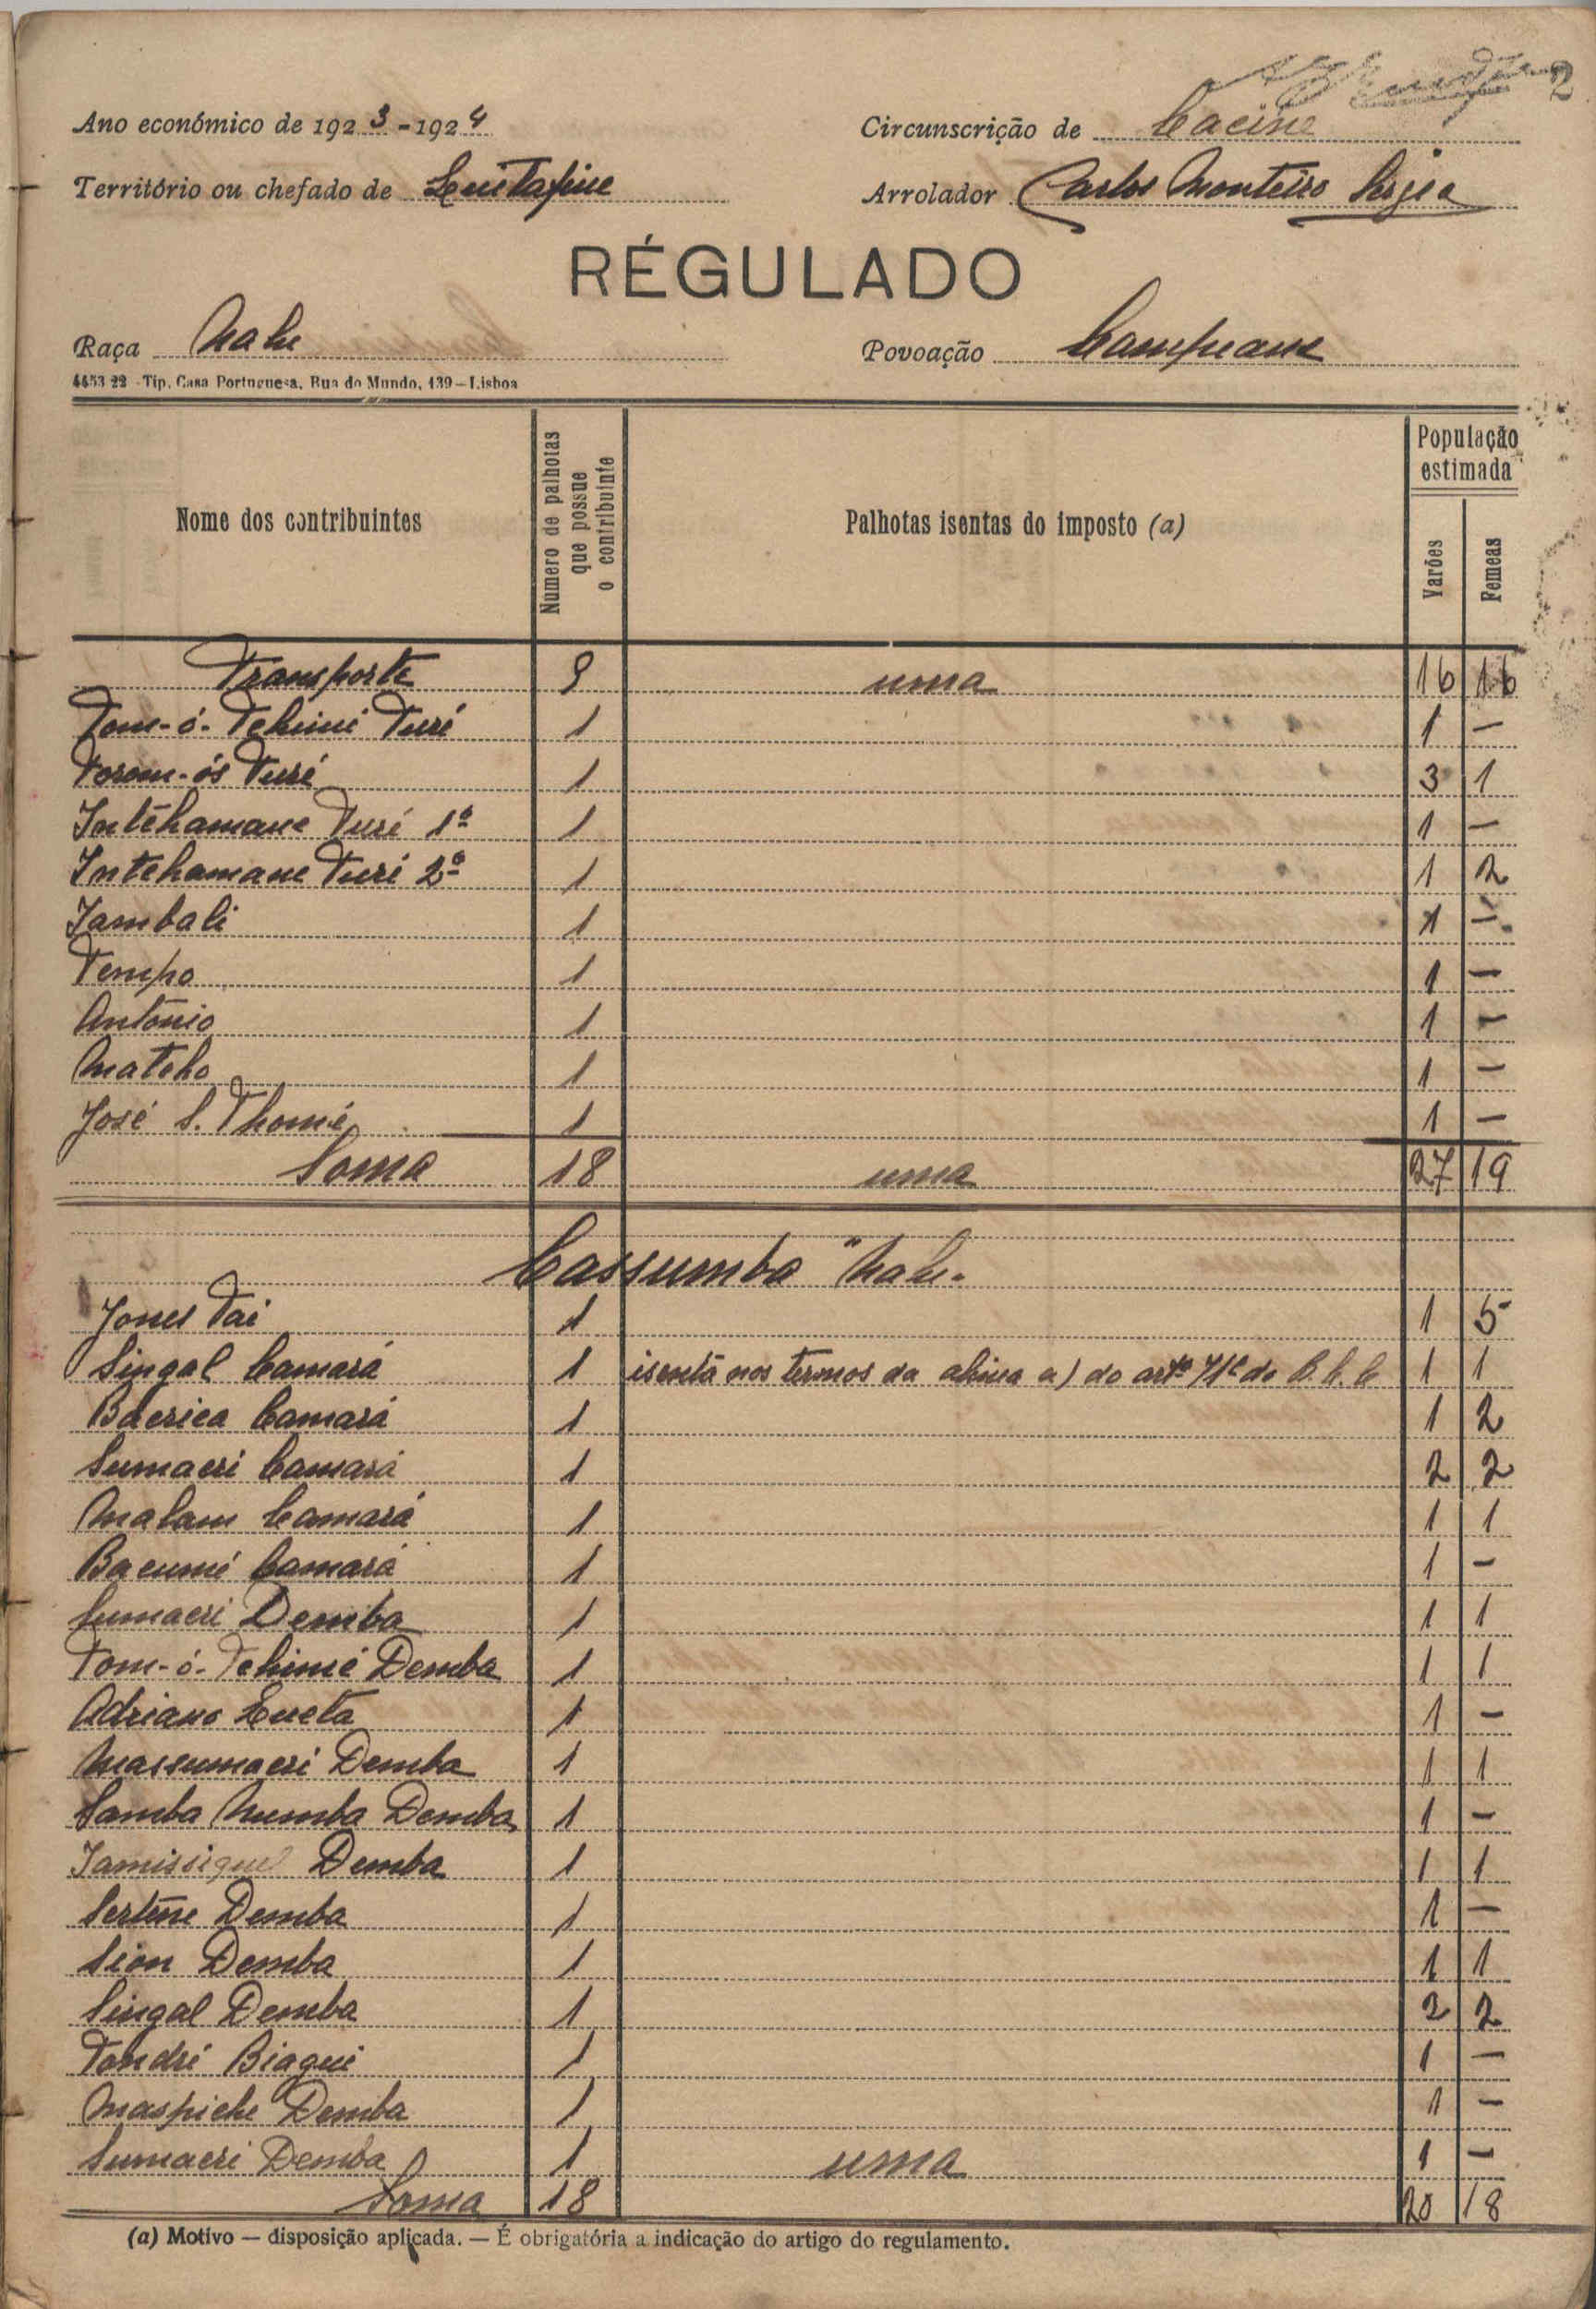 2
Ano económico de 1923-1924
Circunscrição de Cacine
Território ou chefado de
Arrolador Carlos Monteiro
RÉGULADO
Raça Nalu
Povoação Campeane
4453 22 - Tip. Casa Portuguesa, Rua do Mundo, 139 — Lisboa
Nome dos contribuintes | Numero de palhotas que possue o contribuinte | Palhotas isentas do imposto (a) | População estimada Varões | Femeas
Transporte 9 uma 16 16
Tom-ó-Tchimi Turé 1 1 —
Torom-ós Turé 1 3 1
Intchamane Turé 1º 1 1 —
Intchamane Turé 2º 1 1 2
Jambali 1 1 —
Tempo 1 1 —
António 1 1 —
Matcho 1 1 —
José S. Thomé 1 1 —
Soma 18 uma 27 19
Cassumba "Nalu"
Jones Tai 1 1 5
Singal Camará 1 isenta nos termos da alinea a) do artº do 1 1
Camará 1 1 2
Sumacri Camará 1 2 2
Malam Camará 1 1 1
Bacumé Camará 1 1 —
Sumacri Demba 1 1 1
Tom-ó-Tchimé Demba 1 1 1
Adriano 1 1 —
Massumacri Demba 1 1 1
Samba Numba Demba 1 1 —
Demba 1 1 1
Demba 1 1 —
Sion Demba 1 1 1
Singal Demba 1 2 2
Tondri Biagui 1 1 —
Maspiche Demba 1 1 —
Sumacri Demba 1 uma 1 —
Soma 18 20 18
(a) Motivo — disposição aplicada. — É obrigatória a indicação do artigo do regulamento.